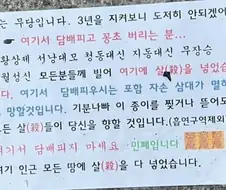 는 무당입니다. 3년을 지켜보니 도저히 안되겠어
여기서 담배피고 꽁초 버리는 분...
황상제 서낭대모 청동대신 지동대신 무장승
월성신 모든분들께 빌어 여기에 살(殺)을 넣었
니다. 담배피우시는 포함 자손 삼대가 멸하
망할것입니다. 기분나빠 이 종이를 찢거나 뜯어도
든 살(殺)들이 당신을 향할 것입니다.(흡연구역제외
여기서 담배피지 마세요 민폐입니다
여기 인근 모든 땅에 살(殺)을 다 넣었습니다.